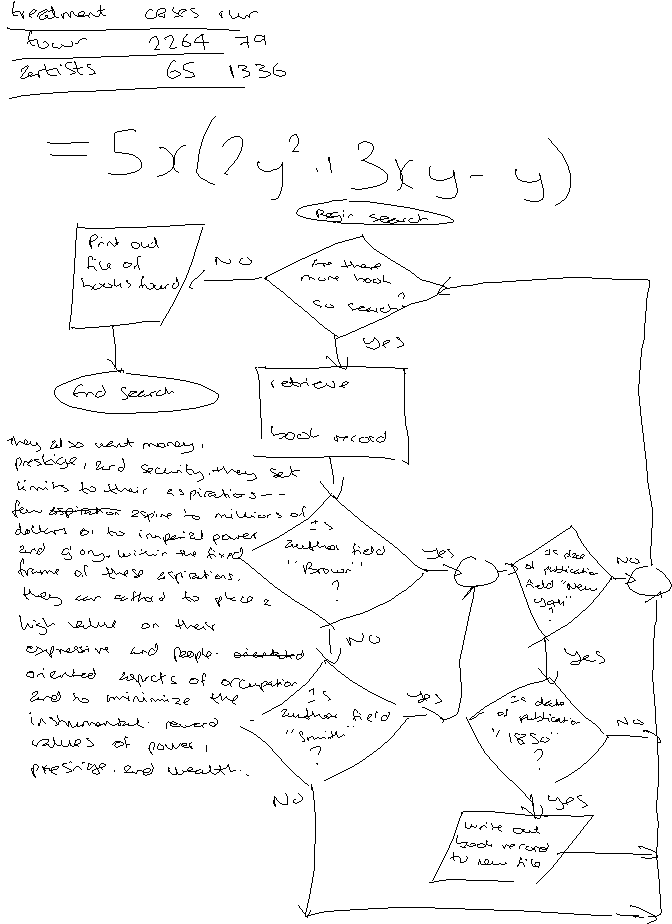 treatment cases run
tour 2264 79
artists 65 1336
= 5x(2y² + 3xy - y)
Begin search
Are there
more book
so search?
NO
Print out
file of
books found
End search
Yes
retrieve
book record
they also want money,
prestige, and security. they set
limits to their aspirations --
few aspire to millions of
dollars or to imperial power
and glory. within the fixed
frame of these aspirations.
they can afford to place a
high value on their
expressive and people-
oriented aspects of occupation
and to minimize the
instrumental reward
values of power,
prestige, and wealth.
Is
author field
"Brown"
?
Yes
NO
Is
author field
"Smith"
?
Yes
NO
Is date
of publication
field "New
York"
?
NO
Yes
Is date
of publication
"1850"
?
NO
Yes
Write out
book record
to new file